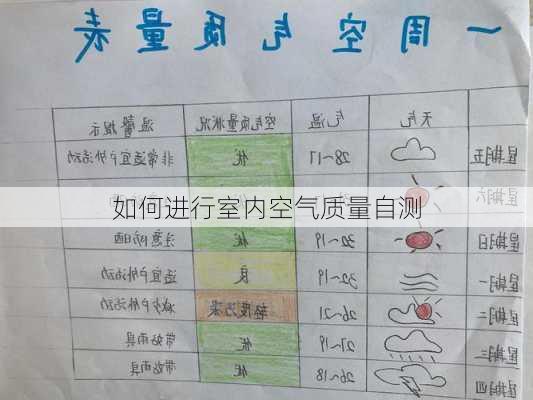 一周空气质量表
天气 气温 空气质量状况 温馨提示
星期五 28~17 优 非常适宜户外活动
星期六
如何进行室内空气质量自测
星期日 32~19 优 注意防晒
星期一 32~19 良 适宜户外活动
星期二 26~21 轻度污染 减少户外活动
星期三 27~19 优 带好雨具
星期四 26~18 优 带好雨具